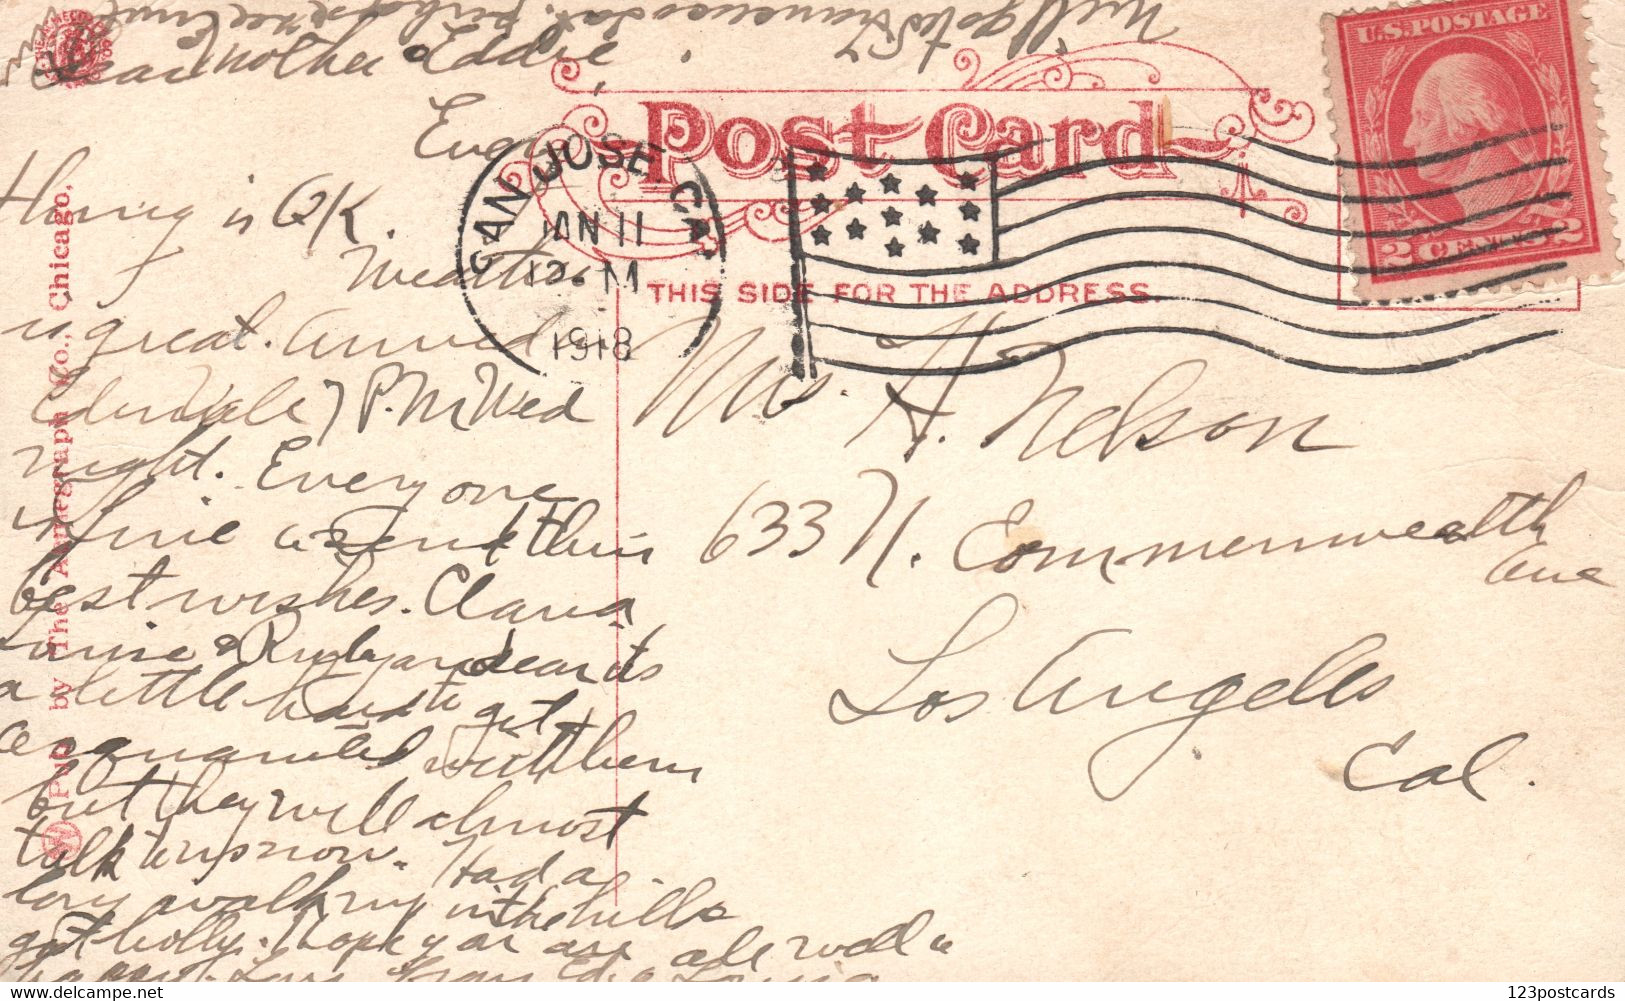 Will go to San Francisco Sat. perhaps
Dear Mother & Eddie,
Post Card
U.S. POSTAGE
2 CENTS 2
SAN JOSE, CA
JAN 11
12 - M
1918
THIS SIDE FOR THE ADDRESS.
is OK.
Weather
is great. Arrived
7 P.M. Wed
night. Everyone
fine & send their
best wishes. Clara
& Ruby are dear its
a little hard to get
acquainted with them
but they will almost
talk to us now. Had a
long walk in the hills
got holly. Hope you are all well &
happy. Love from Ed & Louise
Mrs. H. Nelson
633 N. Commonwealth
Ave
Los Angeles
Cal.
Pub by The Acmegraph Co., Chicago.
123postcards